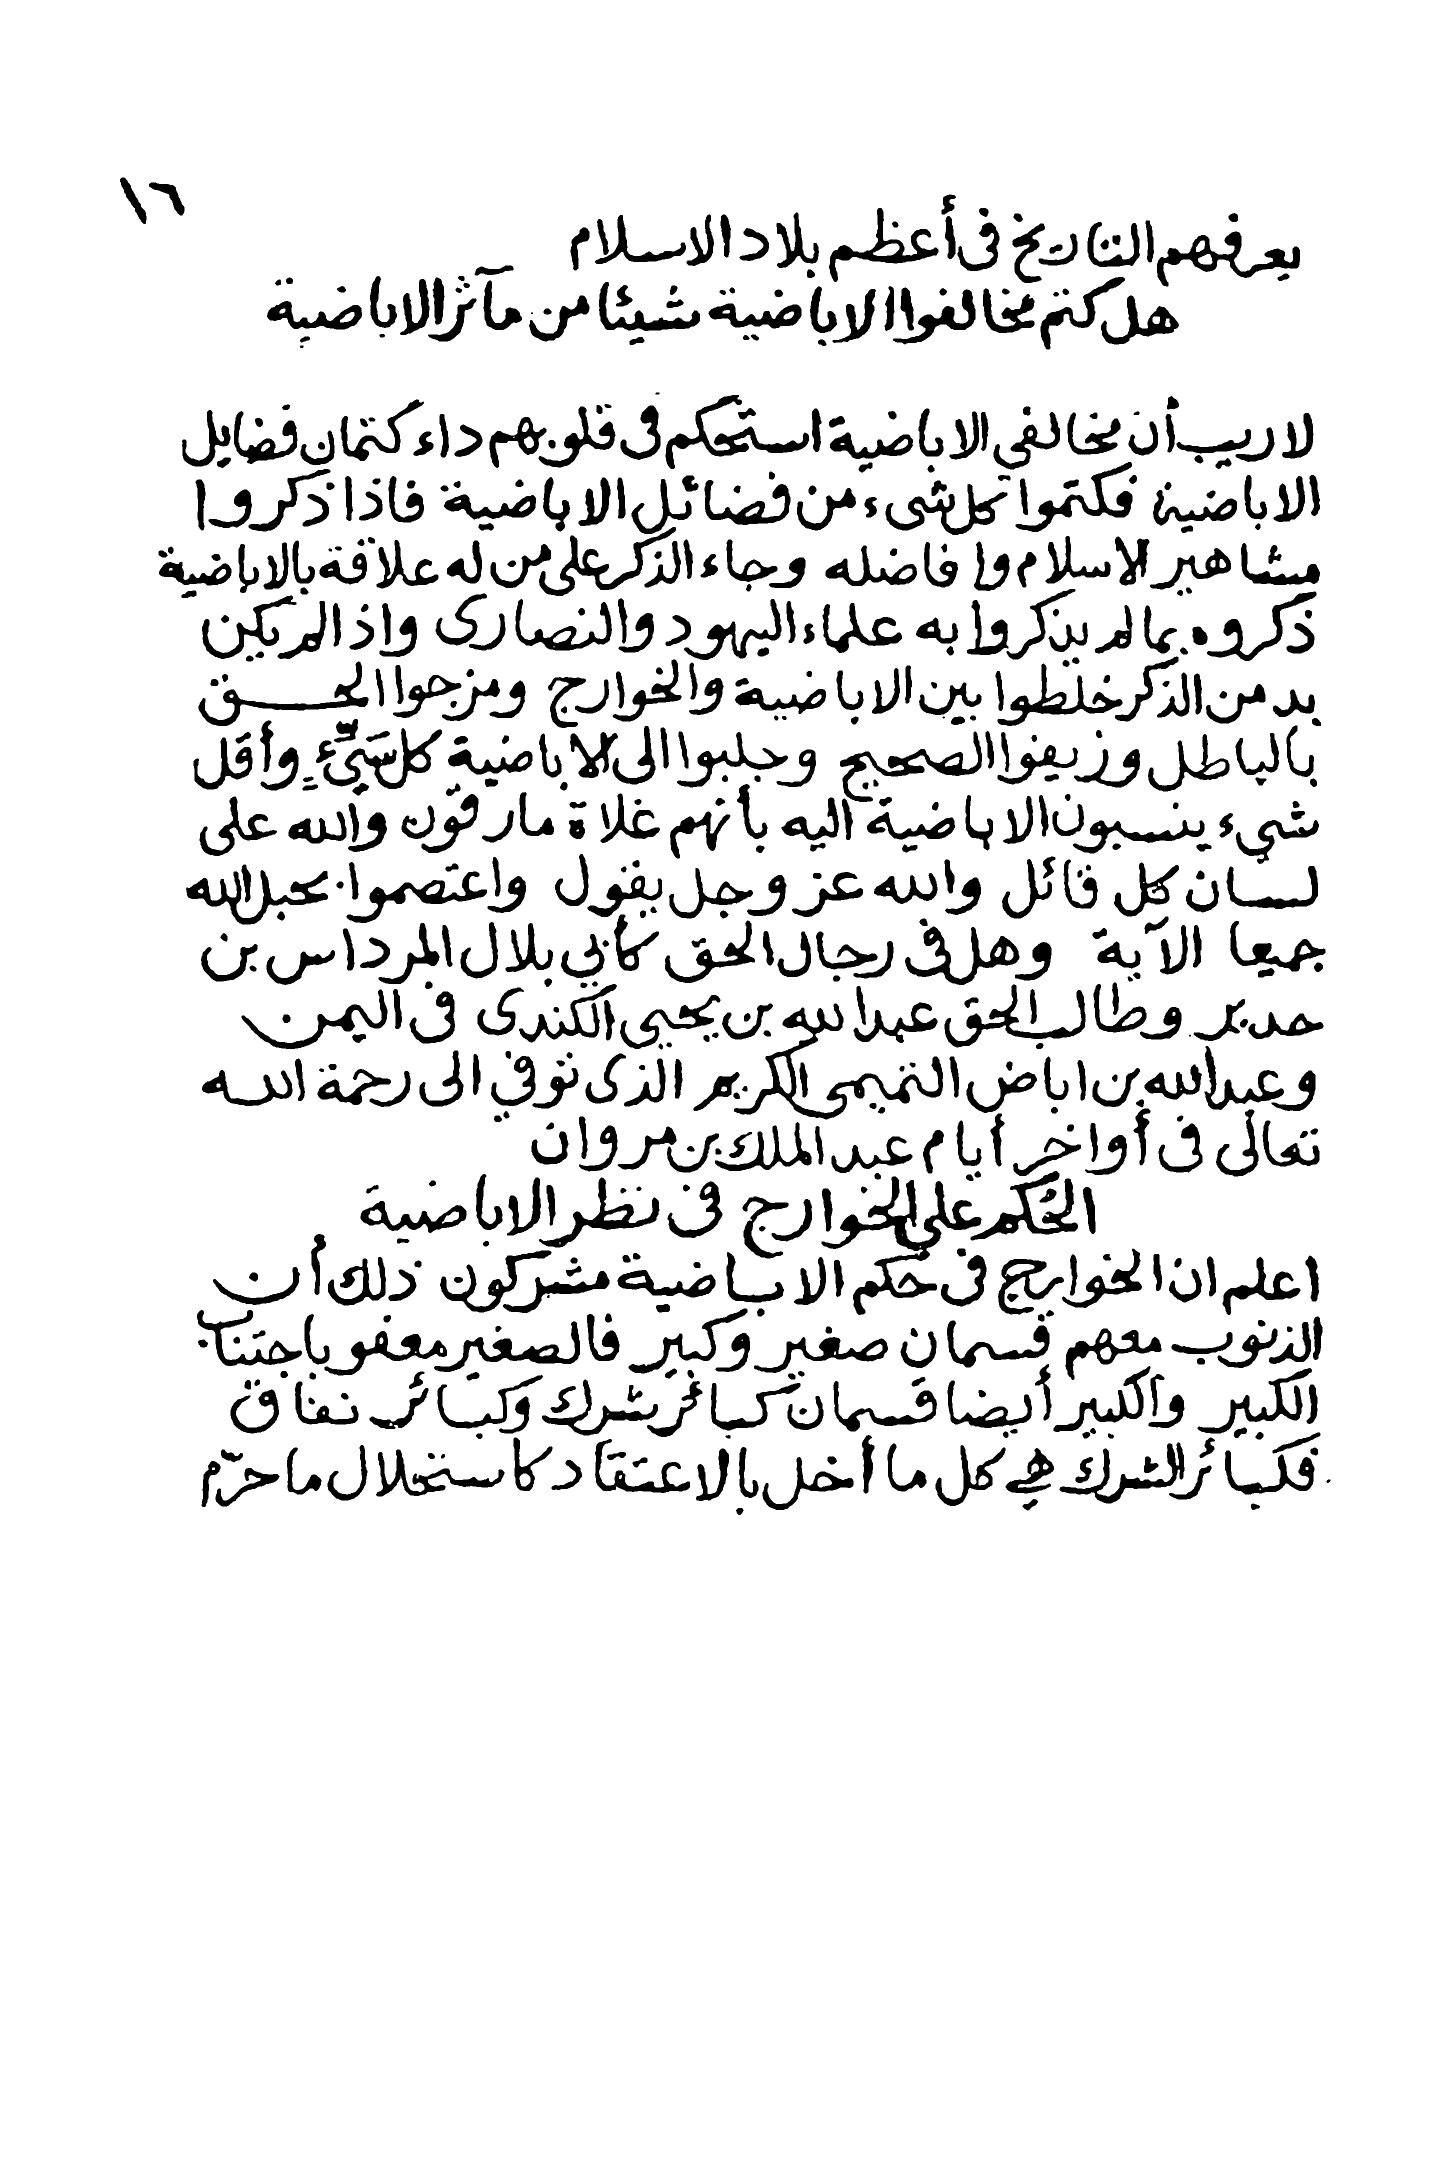 ١٦
يعرفهم التاريخ فى أعظم بلاد الاسلام
هل كتم مخالفوا الاباضية شيئا من مآثر الاباضية
لا ريب أن مخالفي الاباضية استحكم فى قلوبهم داء كتمان فضايل
الاباضية فكتموا كل شىء من فضائل الاباضية فاذا ذكروا
مشاهير الاسلام وافاضله وجاء الذكر على من له علاقة بالاباضية
ذكروه بما لم يذكروا به علماء اليهود والنصارى واذا لم يكن
بد من الذكر خلطوا بين الاباضية والخوارج ومزجوا الحق
بالباطل وزيفوا الصحيح وجلبوا الى الاباضية كل سَيِّءٍ وأقل
شيء ينسبون الاباضية اليه بأنهم غلاة مارقون والله على
لسان كل قائل والله عز وجل يقول واعتصموا بحبل الله
جميعا الآية وهل فى رجال الحق كأبي بلال المرداس بن
حدير وطالب الحق عبد الله بن يحيى الكندى فى اليمن
وعبد الله بن اباض التميمى الكريم الذى توفي الى رحمة الله
تعالى فى أواخر أيام عبد الملك بن مروان
الحُكم على الخوارج فى نظر الاباضية
اعلم ان الخوارج فى حُكم الاباضية مشركون ذلك أن
الذنوب معهم قسمان صغير وكبير فالصغير معفو باجتناب
الكبير والكبير أيضا قسمان كبائر شرك وكبائر نفاق
فكبائر الشرك هي كل ما أخل بالاعتقاد كاستحلال ما حرّم